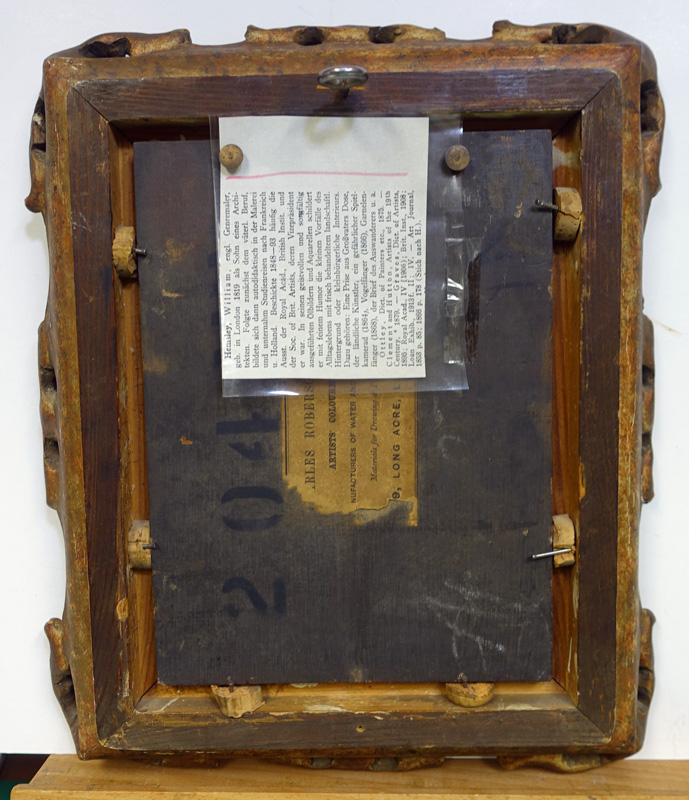 Hemsley, William, engl. Genremaler,
geb. in London 1819 als Sohn eines Archi-
tekten. Folgte zunächst dem väterl. Beruf,
bildete sich dann autodidaktisch in der Malerei
und unternahm Studienreisen nach Frankreich
u. Holland. Beschickte 1848—93 häufig die
Ausst. der Royal Acad., British Instit. und
der Soc. of Brit. Artists, deren Vizepräsident
er war. In seinen geistvollen und sorgfältig
ausgeführten Ölbildern und Aquarellen schildert
er mit feinem Humor die kleinen Vorfälle des
Alltagslebens mit frisch behandeltem landschaftl.
Hintergrund oder kleinbürgerliche Interieurs.
Dazu gehören: Eine Prise aus Großvaters Dose,
der ländliche Künstler, ein gefährlicher Spiel-
kamerad (1864), Vogelfänger (1866), Garneelen-
fänger (1868), der Brief des Auswanderers u. a.
Ottley, Dict. of Painters etc., 1875. —
Clement and Hutton, Artists of the 19th
Century, 4 1879. — Graves, Dict. of Artists,
1895; Royal Acad., IV (1906); Brit. Inst., 1908;
Loan Exhib., 1913 f. II; IV. — Art Journal,
1853 p. 85; 1866 p. 178 (Stich nach H.).
RLES ROBER
ARTISTS' COLOU
NUFACTURERS OF WATER A
Materials for Drawing
9, LONG ACRE, L
204